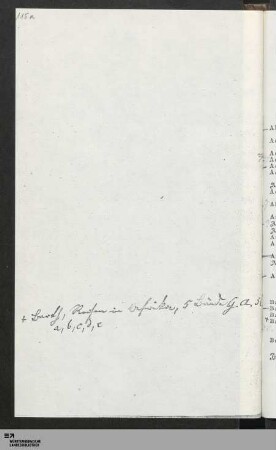 115a
+ Barth, Reisen in Afrika, 5 Bände G. A. 5.
a, b, c, d, e
WÜRTTEMBERGISCHE LANDESBIBLIOTHEK